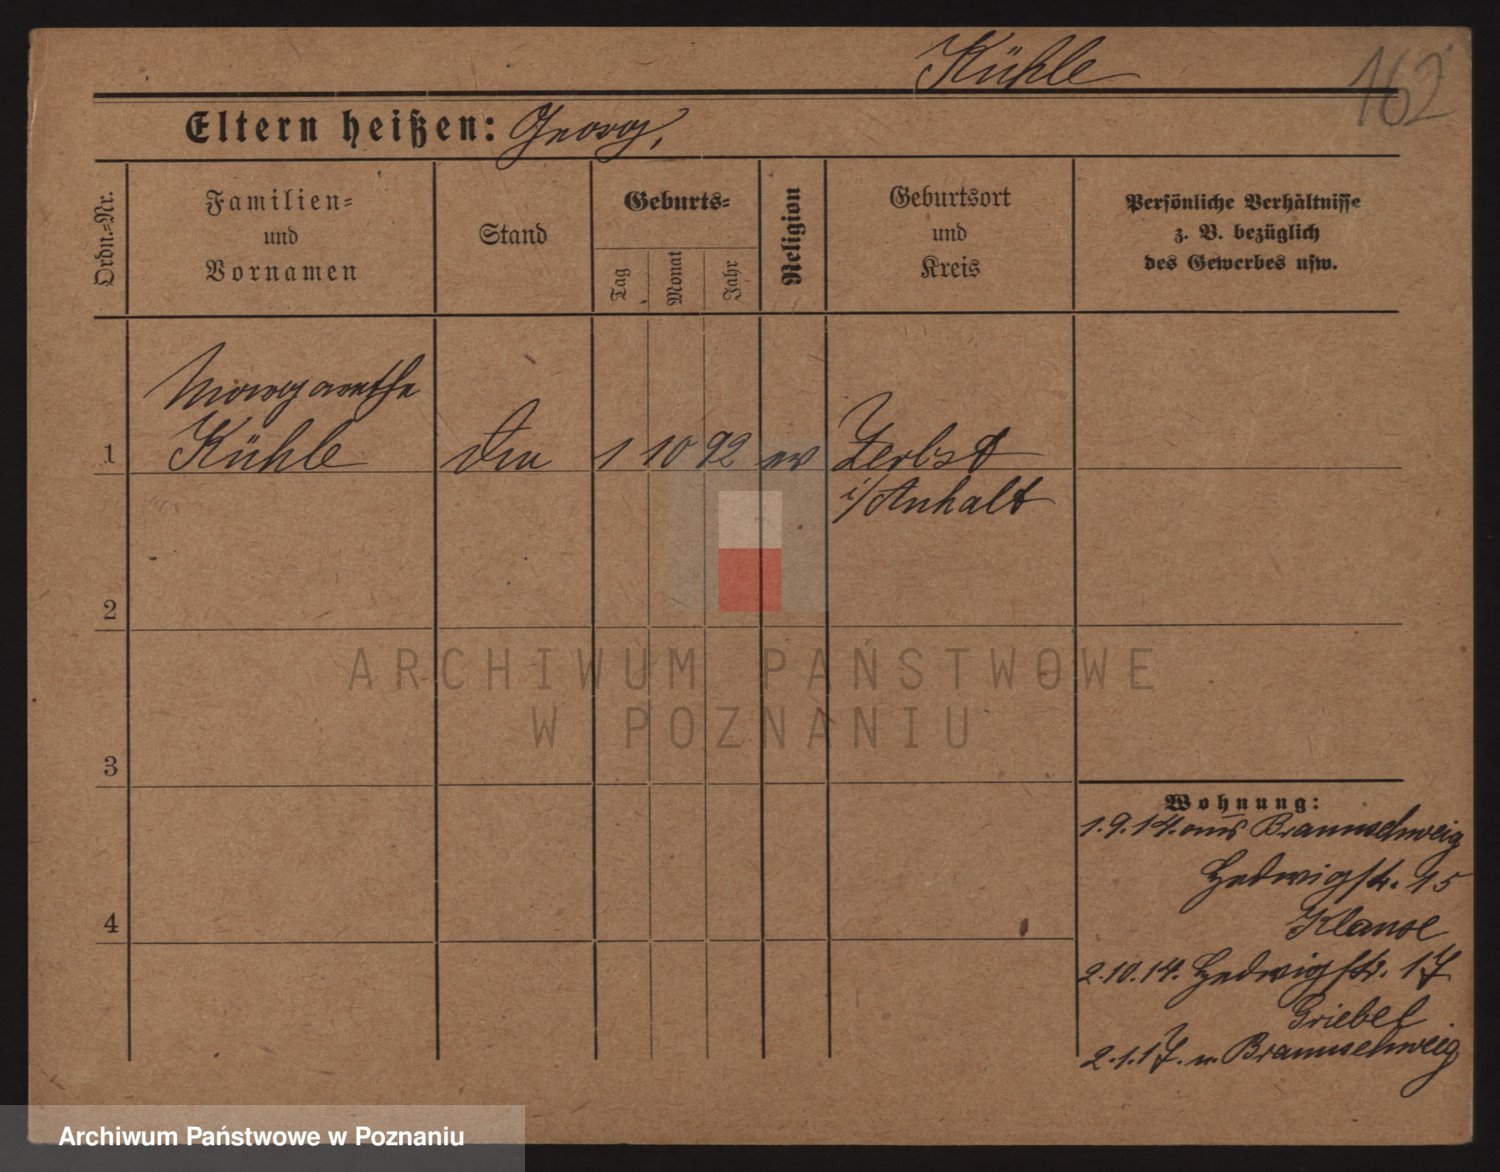 Kühle
162
Eltern heißen: Georg,
Ordn.=Nr.
Familien=
und
Vornamen
Stand
Geburts=
Tag
Monat
Jahr
Religion
Geburtsort
und
Kreis
Persönliche Verhältnisse
z. B. bezüglich
des Gewerbes usw.
Margarethe
1 Kühle 1 10 92 ev Zerbst
i/Anhalt
2
3
4
ARCHIWUM PAŃSTWOWE
W POZNANIU
Wohnung:
1.9.14. aus Braunschweig
Hedwigstr. 15
Klause
2.10.14. Hedwigstr. 17
Griebel
2.1.17. n. Braunschweig
Archiwum Państwowe w Poznaniu